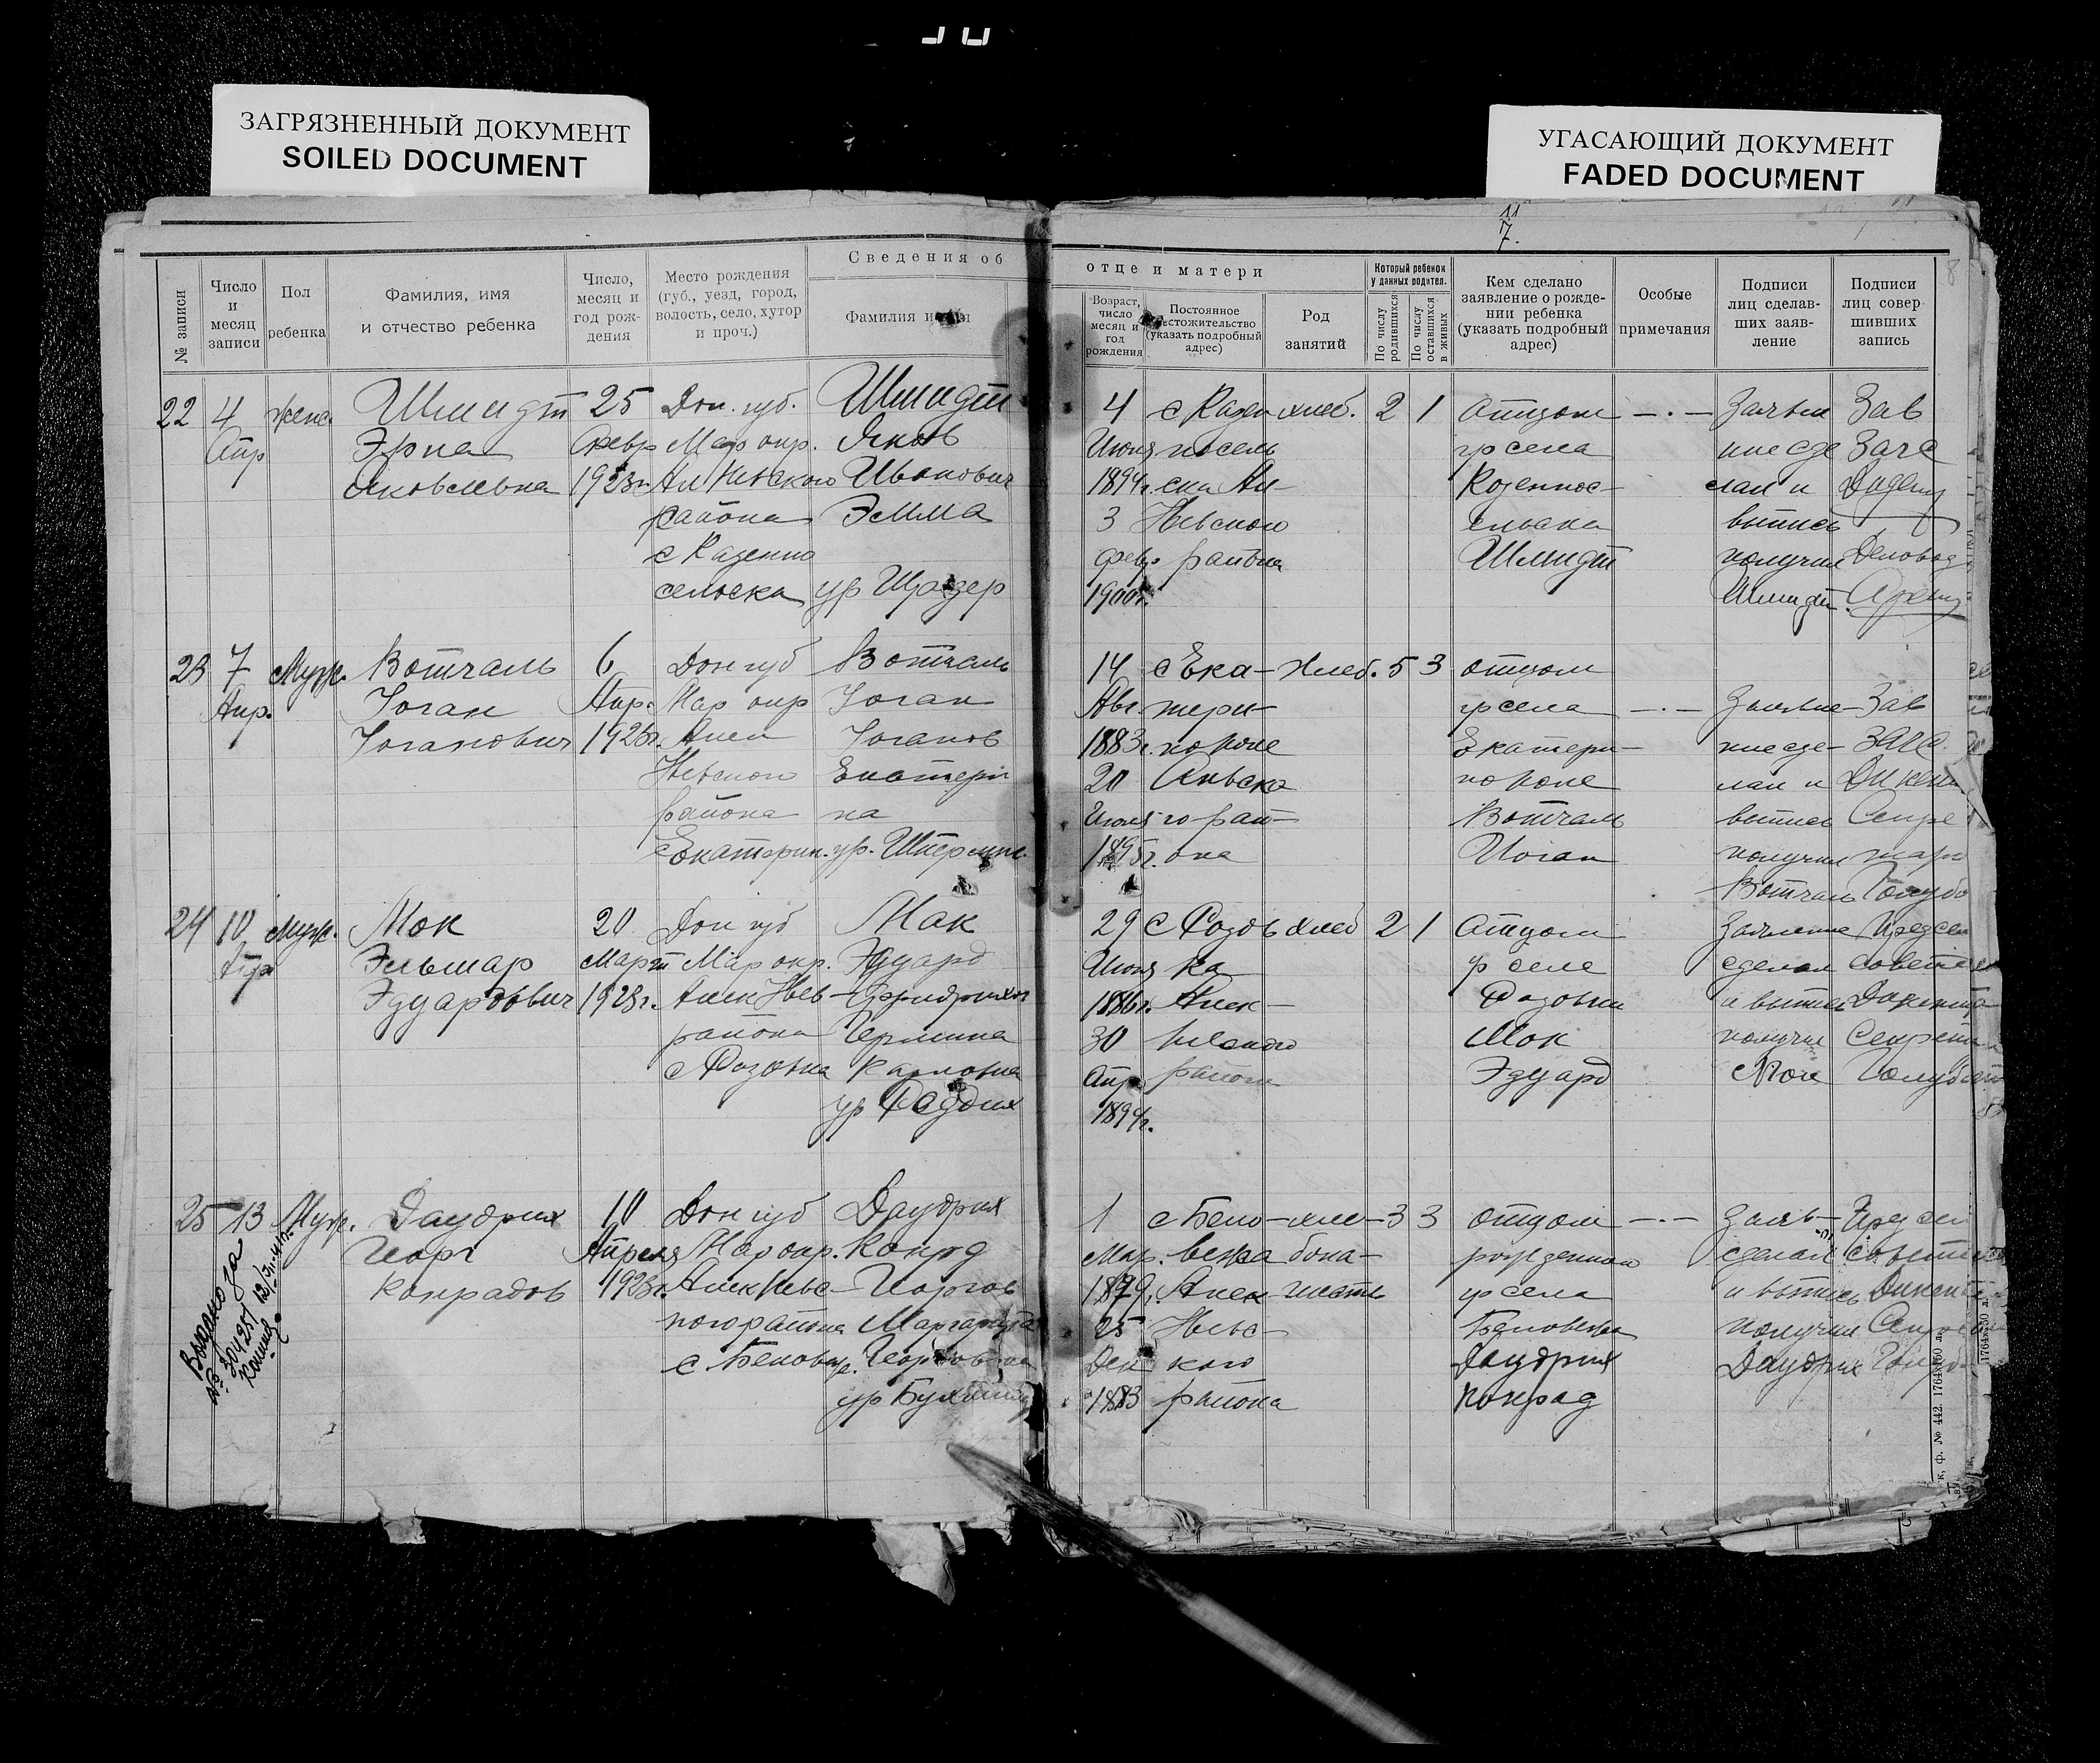 ЗАГРЯЗНЕННЫЙ ДОКУМЕНТ
SOILED DOCUMENT
УГАСАЮЩИЙ ДОКУМЕНТ
FADED DOCUMENT
11
7.
8
Сведения об отце и матери
№ записи
Число и месяц записи
Пол ребенка
Фамилия, имя и отчество ребенка
Число, месяц и год рождения
Место рождения (губ., уезд, город, волость, село, хутор и проч.)
Фамилия и
Возраст, число месяц и год рождения
Постоянное местожительство (указать подробный адрес)
Род занятий
Который ребенок у данных родител.
По числу родившихся
По числу оставшихся в живых
Кем сделано заявление о рождении ребенка (указать подробный адрес)
Особые примечания
Подписи лиц сделавших заявление
Подписи лиц совершивших запись
22
4
Апр
женс.
Шмидт
Эрна
Яковлевна
25
Февр
1923г.
Дон. губ.
Мар окр.
Ал Невского
района
с Казенно
сельска
Шмидт
Яков
Иванович
Эмма
ур
4
Июня
1894г.
3
февр
1900г.
с Казен
носель
ска Ал-
Невского
района
хлеб.
2
1
Отцом
гр села
Козеннос-
ельска
Шмидт
— . —
Заявле
ние сде
лал и
выпись
получил
Шмидт.
Зав
Загс
Деловод
23
7
Апр.
Муж.
Вотчаль
Иоган
Иоганович
6
Апр.
1923г.
Дон губ
Мар окр
Алек
Невского
района
с Екатерин.
Вотчаль
Иоган
Иоганов
Екатери
на
ур.
14
Авг.
1883г.
20
Июня
1895г.
с Ека-
тери-
но поле
го рай-
она
Хлеб.
5
3
отцом
гр села
Екатери-
но поле
Вотчаль
Иоган
— . —
Заявле-
ние сде-
лал и
выпись
получил
Вотчаль
Зав
Загс
Секре
тарь
24
10
Апр
муж.
Мок
Эльмар
Эдуардович
20
Март
1923г.
Дон губ
Мар окр.
Алек Нев-
района
с Розовка
Мак
Эдуард
Фридрихов
Гермина
Карловна
ур
29
Июня
1886г.
30
Апр
1894г.
с Розов
ка
Алек-
невского
района
хлеб
2
1
Отцом
гр селе
Розовки
Мок
Эдуард
Заявление
сделал
и выпись
получил
Мок
Предсе
совета
Секрет
25
13
Муж.
Даудрих
Георг
Конрадов
10
Апреля
1923г.
Дон губ
Мар окр.
Алек Невс-
кого района
с Беловеж.
Даудрих
Конрд
Георгов
Маргарита
ур
1
Мар.
1879г.
25
Дек
1883
с Бело-
вежа
Алек-
Невс-
кого
района
хле-
бопа-
шест
3
3
отцом
рожденного
гр села
Беловежа
Даудрих
Конрад
— . —
Заяв-
сделал
и выпись
получил
Даудрих
Предсе
совета
Выдано за
№ 304251
к, ф. № 442. 1764х50 л.
1764х50 л.